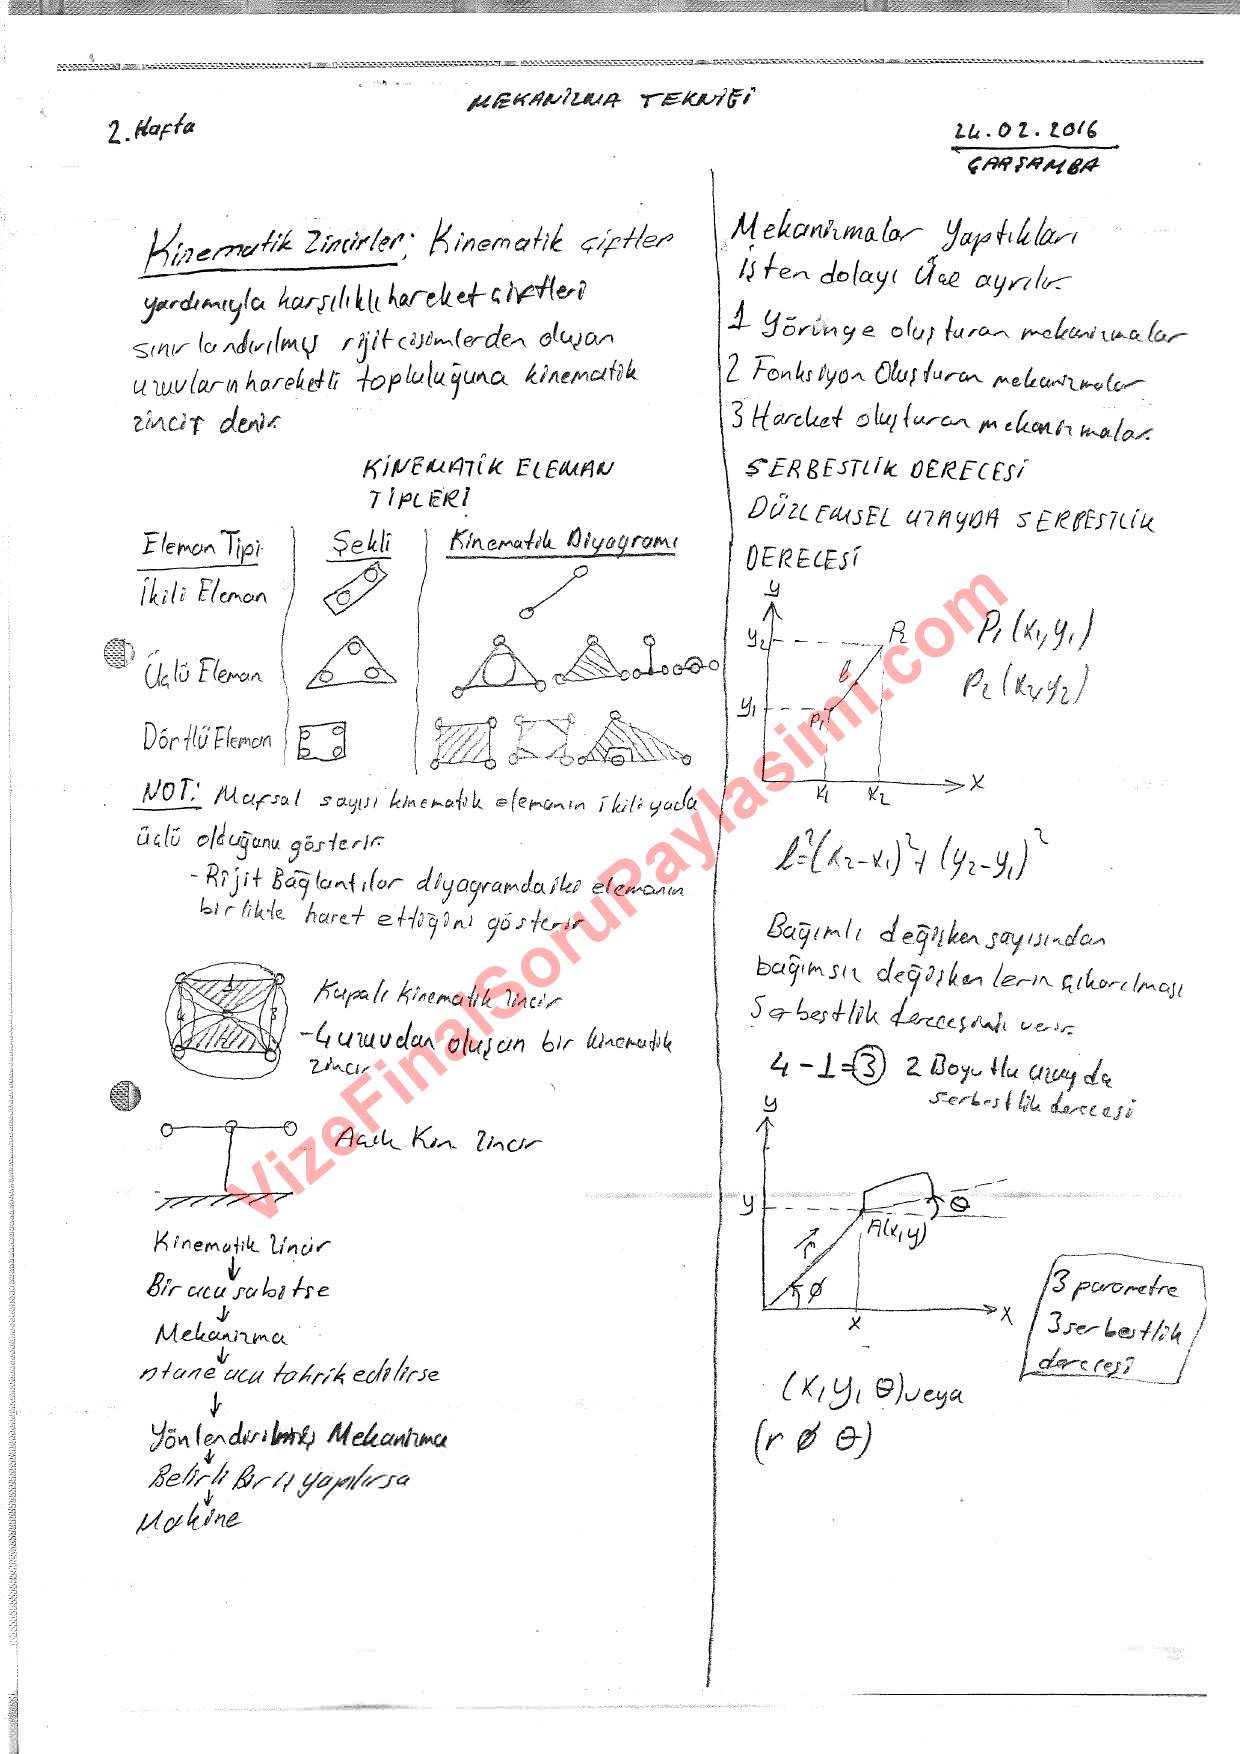 MEKANİZMA TEKNİĞİ
2. Hafta
24.02.2016
ÇARŞAMBA
Kinematik Zincirler; Kinematik çiftler
yardımıyla karşılıklı hareket çiftleri
sınırlandırılmış rijit cisimlerden oluşan
uzuvların hareketli topluluğuna kinematik
zincir denir.
KİNEMATİK ELEMAN
TİPLERİ
Eleman Tipi Şekli Kinematik Diyagramı
İkili Eleman
Üçlü Eleman
Dörtlü Eleman
NOT: Mafsal sayısı kinematik elemanın ikili yada
üçlü olduğunu gösterir.
- Rijit Bağlantılar diyagramda iki elemanın
birlikte haret ettiğini gösterir
1
4 3
Kapalı kinematik zincir
- 4 uzuvdan oluşan bir kinematik
zincir
Açık Kin. zincir
Kinematik zincir
↓
Bir ucu sabitse
↓
Mekanizma
↓
n tane ucu tahrik edilirse
↓
Yönlendirilmiş Mekanizma
↓
Belirli Bir iş yapılırsa
↓
Makine
Mekanizmalar yaptıkları
işten dolayı üçe ayrılır.
1 Yörünge oluşturan mekanizmalar
2 Fonksiyon Oluşturan mekanizmalar
3 Hareket oluşturan mekanizmalar.
SERBESTLİK DERECESİ
DÜZLEMSEL UZAYDA SERBESTLİK
DERECESİ
y
y2 P2 P1(x1,y1)
l P2(x2,y2)
y1 P1
x1 x2 x
l²=(x2-x1)²+(y2-y1)²
Bağımlı değişken sayısından
bağımsız değişkenlerin çıkarılması
Serbestlik derecesini verir.
4-1=3 2 Boyutlu uzayda
serbestlik derecesi
y
y θ
A(x,y)
r
ø
x x
3 parametre
3 serbestlik
derecesi
(x, y, θ) veya
(r ø θ)
VizeFinalSoruPaylasimi.com